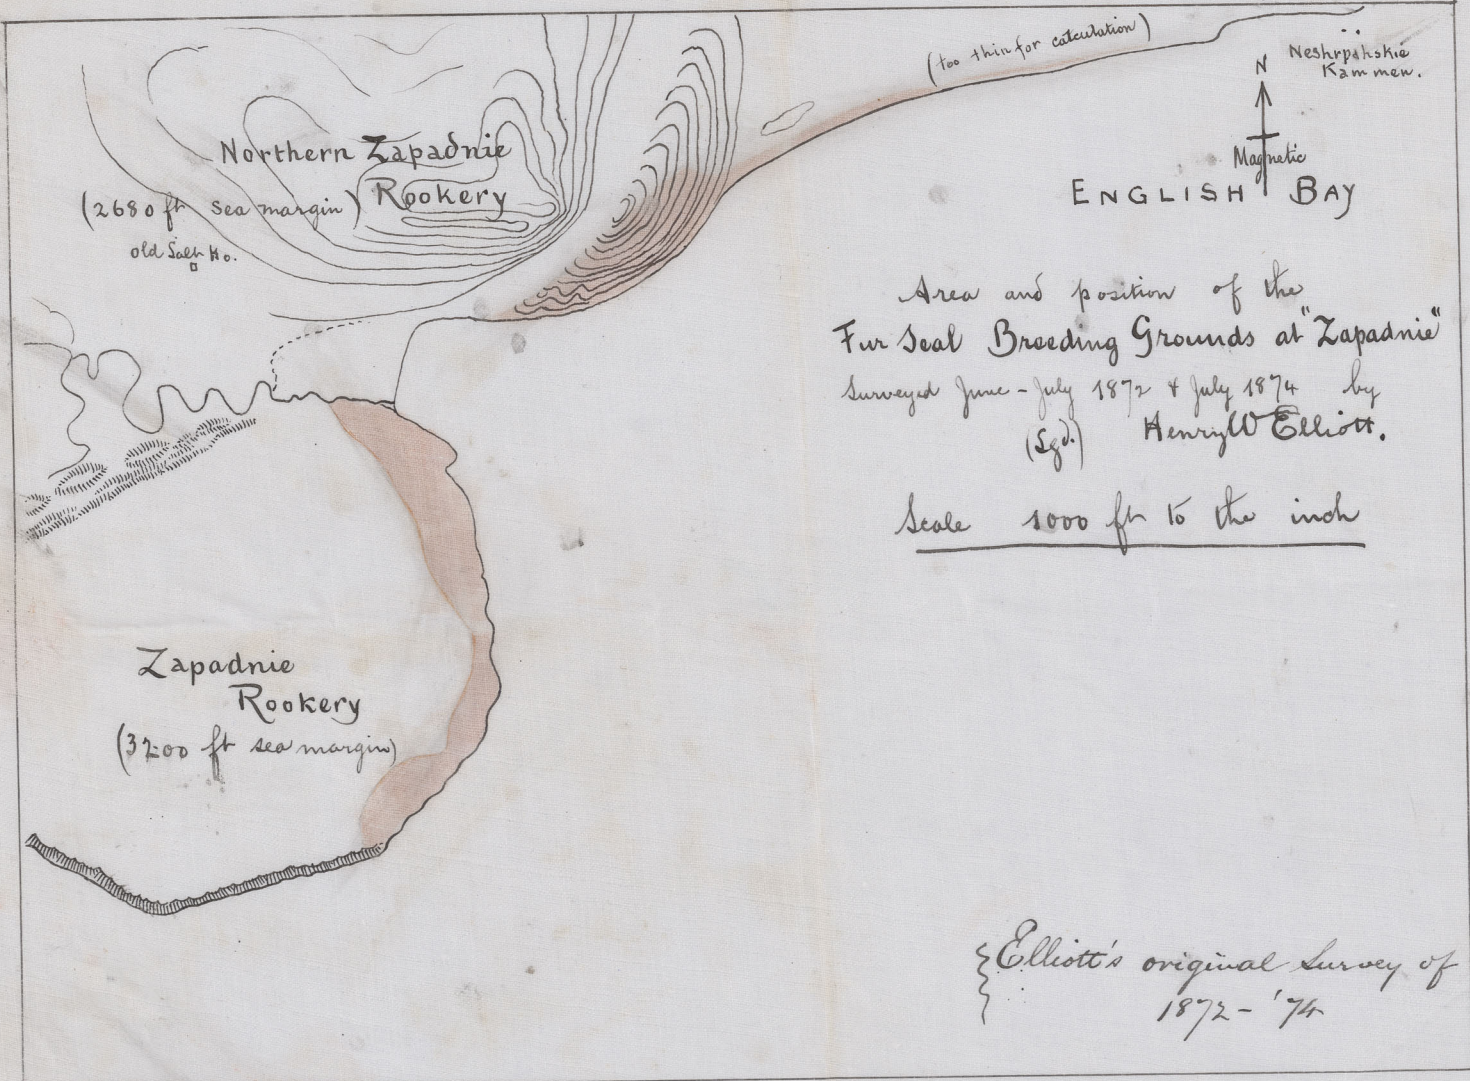 (too thin for calculation)
Neshrpahskie
Kammen.
N
Magnetic
ENGLISH BAY
Northern Zapadnie
Rookery
(2680 ft sea margin)
old Salt Ho.
Area and position of the
Fur Seal Breeding Grounds at "Zapadnie"
Surveyed June - July 1872 & July 1874 by
(Sgd.) Henry W Elliott.
Scale 1000 ft to the inch
Zapadnie
Rookery
(3200 ft sea margin)
Elliott's original Survey of
1872 - '74